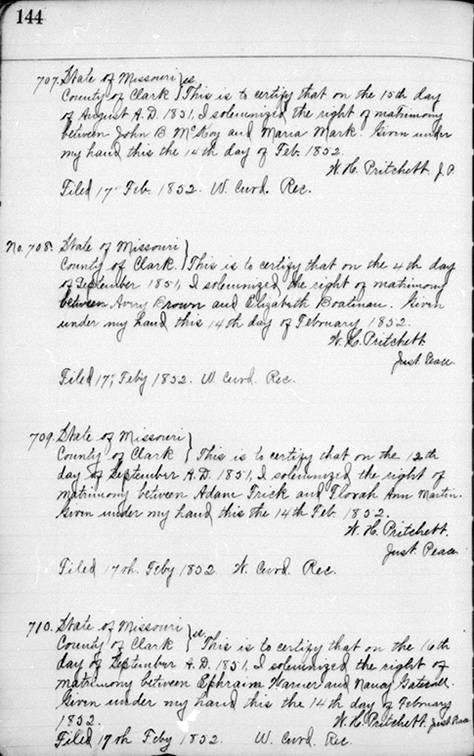 144
707. State of Missouri } ss
County of Clark } This is to certify that on the 15th day
of August A.D. 1851, I solemnized the right of matrimony
between John B McKoy and Maria Mark Given under
my hand this the 14th day of Feb. 1852.
W. H. Pritchett J.P.
Filed 17 Feb. 1852. W. Curd. Rec.
No. 708. State of Missouri }
County of Clark. } This is to certify that on the 4th day
of September 1851, I solemnized the right of matrimony
between Avery Brown and Elizabeth Boatman. Given
under my hand this 14th day of February 1852.
W. H. Pritchett
Just Peace.
Filed 17, Feby 1852. W Curd. Rec.
709. State of Missouri }
County of Clark } This is to certify that on the 12th
day of September A.D. 1851, I solemnized the right of
matrimony between Adam Frick and Florah Ann Martin.
Given under my hand this the 14th Feb. 1852.
W. H. Pritchett.
Just Peace
Filed 17th Feby 1852 W. Curd. Rec.
710. State of Missouri }
County of Clark } ss This is to certify that on the 16th
day of September A.D. 1851, I solemnized the right of
matrimony between Ephraim Harner and Nancy
Given under my hand this the 14th day of February
1852. W. H. Pritchett Just Peace
Filed 17th Feby 1852. W. Curd Rec.